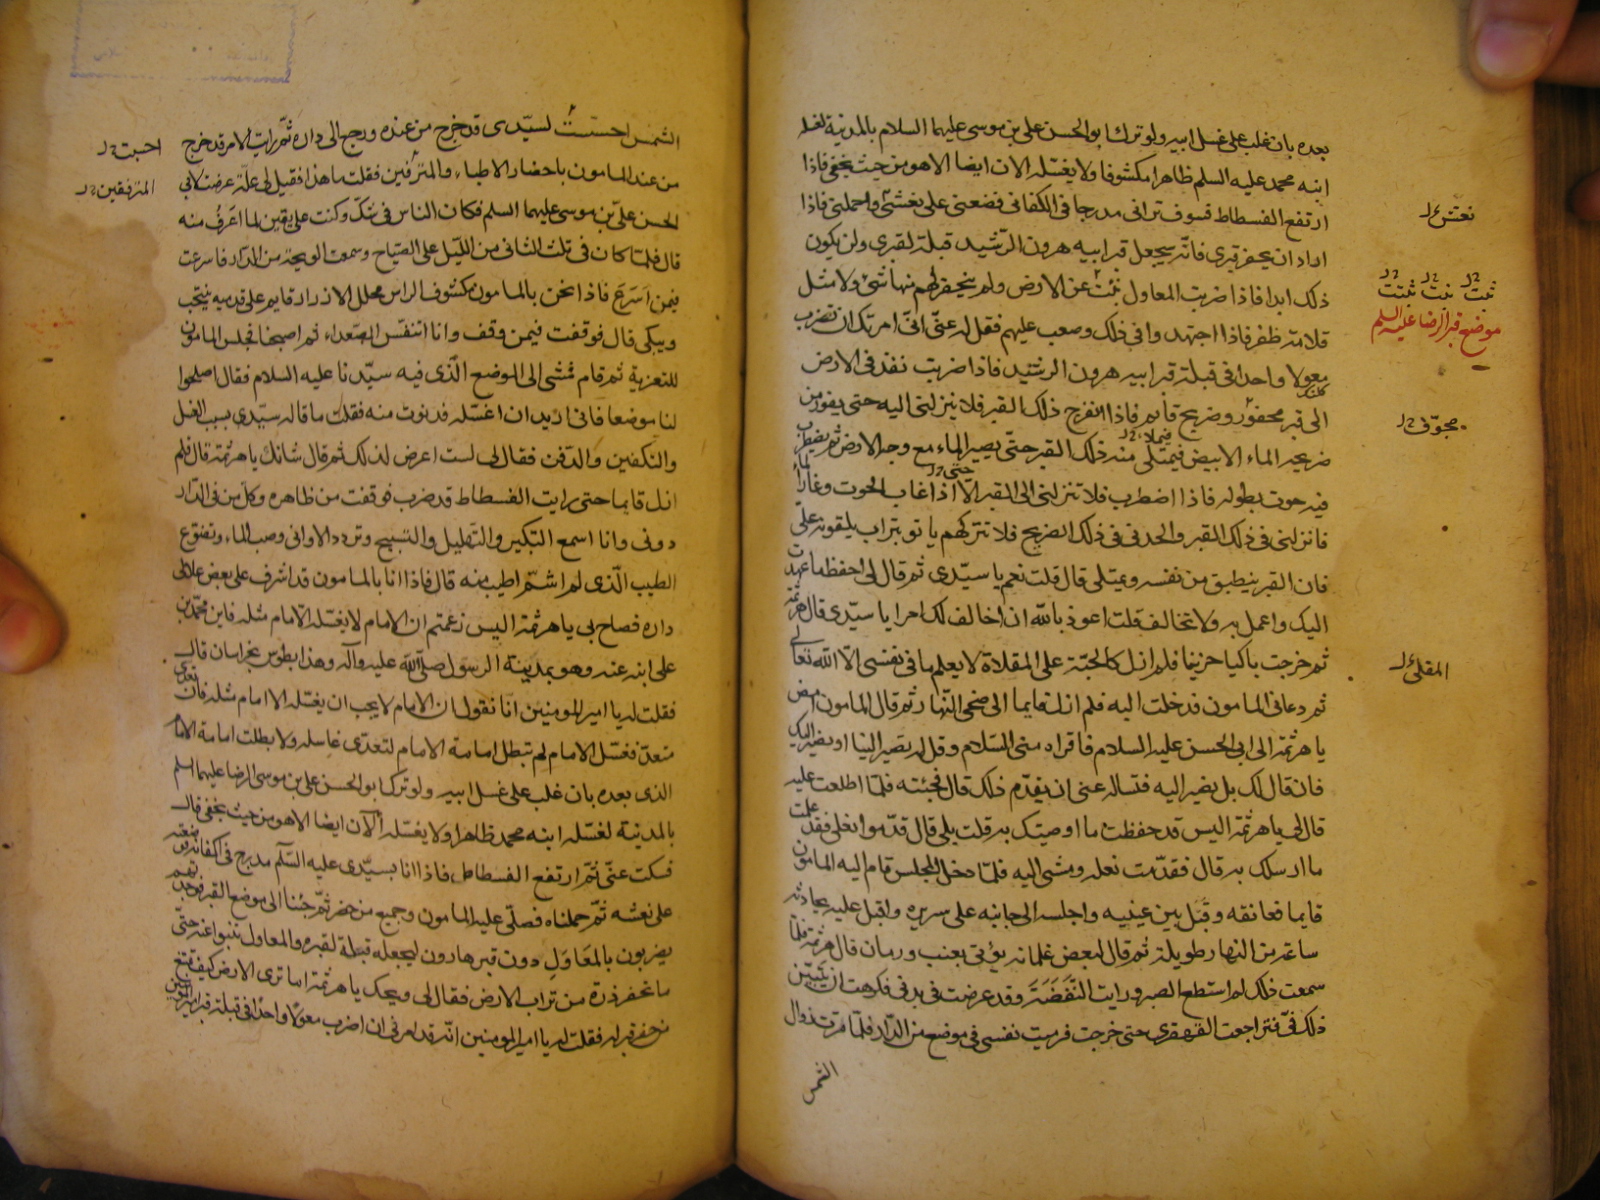 بعده بان غلب على غسل ابيه ولو ترك ابو الحسن على بن موسى عليهما السلام بالمدينة لغسله
ابنه محمد عليه السلم ظاهرا مكشوفا ولا يغسله الان ايضا الا هو من حيث يخفى فاذا
ارتفع الفسطاط فسوف ترانى مدرجا فى اكفانى فضعنى على نعشى واحملنى فاذا
اراد ان يحفر قبرى فانه سيجعل قبر ابيه هرون الرشيد قبلة لقبرى ولن يكون
ذلك ابدا فاذا ضربت المعاول عن الارض ولم ينحفر لهم منها شئ ولا مثل
قلامة ظفر فاذا اجتهدوا فى ذلك وصعب عليهم فقل له عنى انى امرتك ان تضرب
معولا واحدا فى قبلة قبر ابيه هرون الرشيد فاذا ضربت نفذ فى الارض
الى قبر محفور وضريح قايم فاذا انفرج ذلك القبر فلا تنزلنى اليه حتى يفور من
ضريحه الماء الابيض فيمتلى منه ذلك القبر حتى يصير الماء مع وجه الارض ثم يضطرب
فيه حوت بطوله فاذا اضطرب فلا تنزلنى الى القبر الا اذا غاب الحوت وغار الماء
فانزلنى فى ذلك القبر والحدنى فى ذلك الضريح فلا تتركهم ياتو بتراب يلقونه على
فان القبر ينطبق من نفسه ويمتلى قال قلت نعم يا سيدى ثم قال لى احفظ ما عهدت
اليك واعمل به ولا تخالف قلت اعوذ بالله ان اخالف لك امرا يا سيدى قال هرثمة
ثم خرجت باكيا حزينا فلم ازل كالحبة على المقلاة لا يعلم ما فى نفسى الا الله تعالى
ثم دعانى المامون فدخلت اليه فلم ازل قايما الى ضحى النهار ثم قال المامون امض
يا هرثمة الى ابى الحسن عليه السلام فاقراه منى السلام وقل له تصير الينا او نصير اليك
فان قال لك بل نصير اليه فتساله عنى ان يقدم ذلك قال فجئته فلما اطلعت عليه
قال لى يا هرثمة اليس قد حفظت ما اوصيتك به قلت بلى قال قدموا نعلى فقد علمت
ما ارسلك به قال فقدمت نعله ومشى اليه فلما دخل المجلس قام اليه المامون
قايما فعانقه وقبل بين عينيه واجلسه الى جانبه على سريره واقبل عليه يحادثه
ساعة من النهار طويلة ثم قال لبعض غلمانه يؤتى بعنب ورمان قال هرثمة فلما
سمعت ذلك لم استطع الصبر ورايت النفضة وقد عرضت فى بدنى فكرهت ان يتبين
ذلك فى فتراجعت القهقرى حتى خرجت فرميت نفسى فى موضع من الدار فلما قربت زوال
الشمس
نعشى
ثبت نبت ثبتت
موضع قبر الرضا عليه السلم
مجوف
المقلى
الشمس احسست لسيدى قد خرج من عنده ورجع الى داره ثم رايت الامر قد خرج
من عند المامون باحضار الاطباء والمترفين فقلت ما هذا فقيل لى علة عرضت لابى
الحسن على بن موسى عليهما السلم فكان الناس فى شك وكنت على يقين لما اعرف منه
قال فلما كان فى ثلث الثانى من الليل على الصياح وسمعت الوجية من الدار فاسرعت
فيمن اسرع فاذا نحن بالمامون مكشوف الراس محلل الازرار قايم على قدميه ينتحب
ويبكى قال فوقفت فيمن وقف وانا اتنفس الصعداء ثم اصبحنا فجلس المامون
للتعزية ثم قام فمشى الى الموضع الذى فيه سيدنا عليه السلام فقال اصلحوا
لنا موضعا فانى اريد ان اغسله فدنوت منه فقلت ما قاله سيدى بسبب الغسل
والتكفين والدفن فقال لى لست اعرض لذلك ثم قال شانك يا هرثمة قال فلم
ازل قايما حتى رايت الفسطاط قد ضرب فوقفت من ظاهره وكل من فى الدار
دونى وانا اسمع التكبير والتهليل والتسبيح وتردد الاوانى وصب الماء وتضوع
الطيب الذى لم اشم اطيب منه قال فاذا انا بالمامون قد اشرف على بعض علالى
داره فصاح بى يا هرثمة اليس زعمتم ان الامام لا يغسله الا امام مثله فاين محمد بن
على ابنه عنه وهو بمدينة الرسول صلى الله عليه وآله وهذا بطوس بخراسان قال
فقلت له يا امير المومنين انا نقول ان الامام لا يجب ان يغسله الا امام مثله فان تعدى
متعد فغسل الامام لم تبطل امامة الامام لتعدى غاسله ولا بطلت امامة الامام
الذى بعده بان غلب على غسل ابيه ولو ترك ابو الحسن على بن موسى الرضا عليهما السلم
بالمدينة لغسله ابنه محمد ظاهرا ولا يغسله الآن ايضا الا هو من حيث يخفى قال
فسكت عنى ثم ارتفع الفسطاط فاذا انا بسيدى عليه السلم مدرج فى اكفانه فوضعته
على نعشه ثم حملناه فصلى عليه المامون وجميع من حضر ثم جئنا الى موضع القبر فوجدتهم
يضربون بالمعاول دون قبر هارون ليجعله قبلة لقبره والمعاول تنبوا عنه حتى
ما تحفر ذرة من تراب الارض فقال لى ويحك يا هرثمة اما ترى الارض كيف تمتنع
من حفر قبر له فقلت له يا امير المومنين انه قد امرنى ان اضرب معولا واحدا فى قبلة قبر امير المومنين
المترفقين